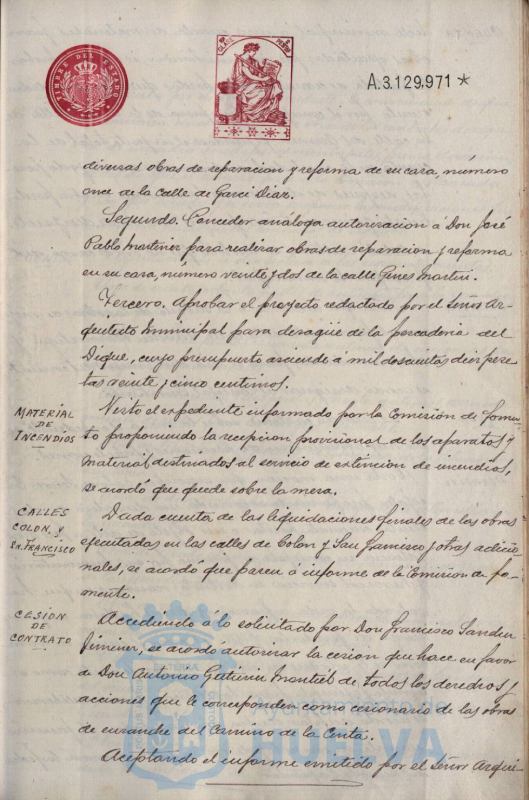 TIMBRE DEL ESTADO
A.3.129,971 *
diversas obras de reparacion y reforma de su casa, número
once de la calle de Garci Diaz.
Segundo. Conceder análoga autorizacion á Don José
Pablo Martinez para realizar obras de reparacion y reforma
en su casa, número veinte y dos de la calle Gines Martin.
Tercero. Aprobar el proyecto redactado por el Señor Ar-
quitecto Municipal para desagüe de la pescaderia del
Dique, cuyo presupuesto asciende á mil doscientas diez pese-
tas veinte y cinco centimos.
MATERIAL
DE
INCENDIOS
Visto el expediente informado por la Comisión de Fomen-
to proponiendo la recepcion provisional de los aparatos y
material destinados al servicio de extincion de incendios,
se acordó que quede sobre la mesa.
CALLES
COLON, y
Sn. FRANCISCO
Dada cuenta de las liquidaciones finales de las obras
ejecutadas en las calles de Colon y San Francisco y otras adicio-
nales, se acordó que pasen á informe de la Comision de Fo-
mento.
CESIÓN
DE
CONTRATO
Accediendo á lo solicitado por Don Francisco
Jimenez, se acordó autorizar la cesion que hace en favor
de Don Antonio Gutierrez Montiel de todos los derechos y
acciones que le corresponden como cesionario de las obras
de ensanche del Camino de la Cinta.
Aceptando el informe emitido por el Señor Arqui-
Ayuntamiento de
HUELVA